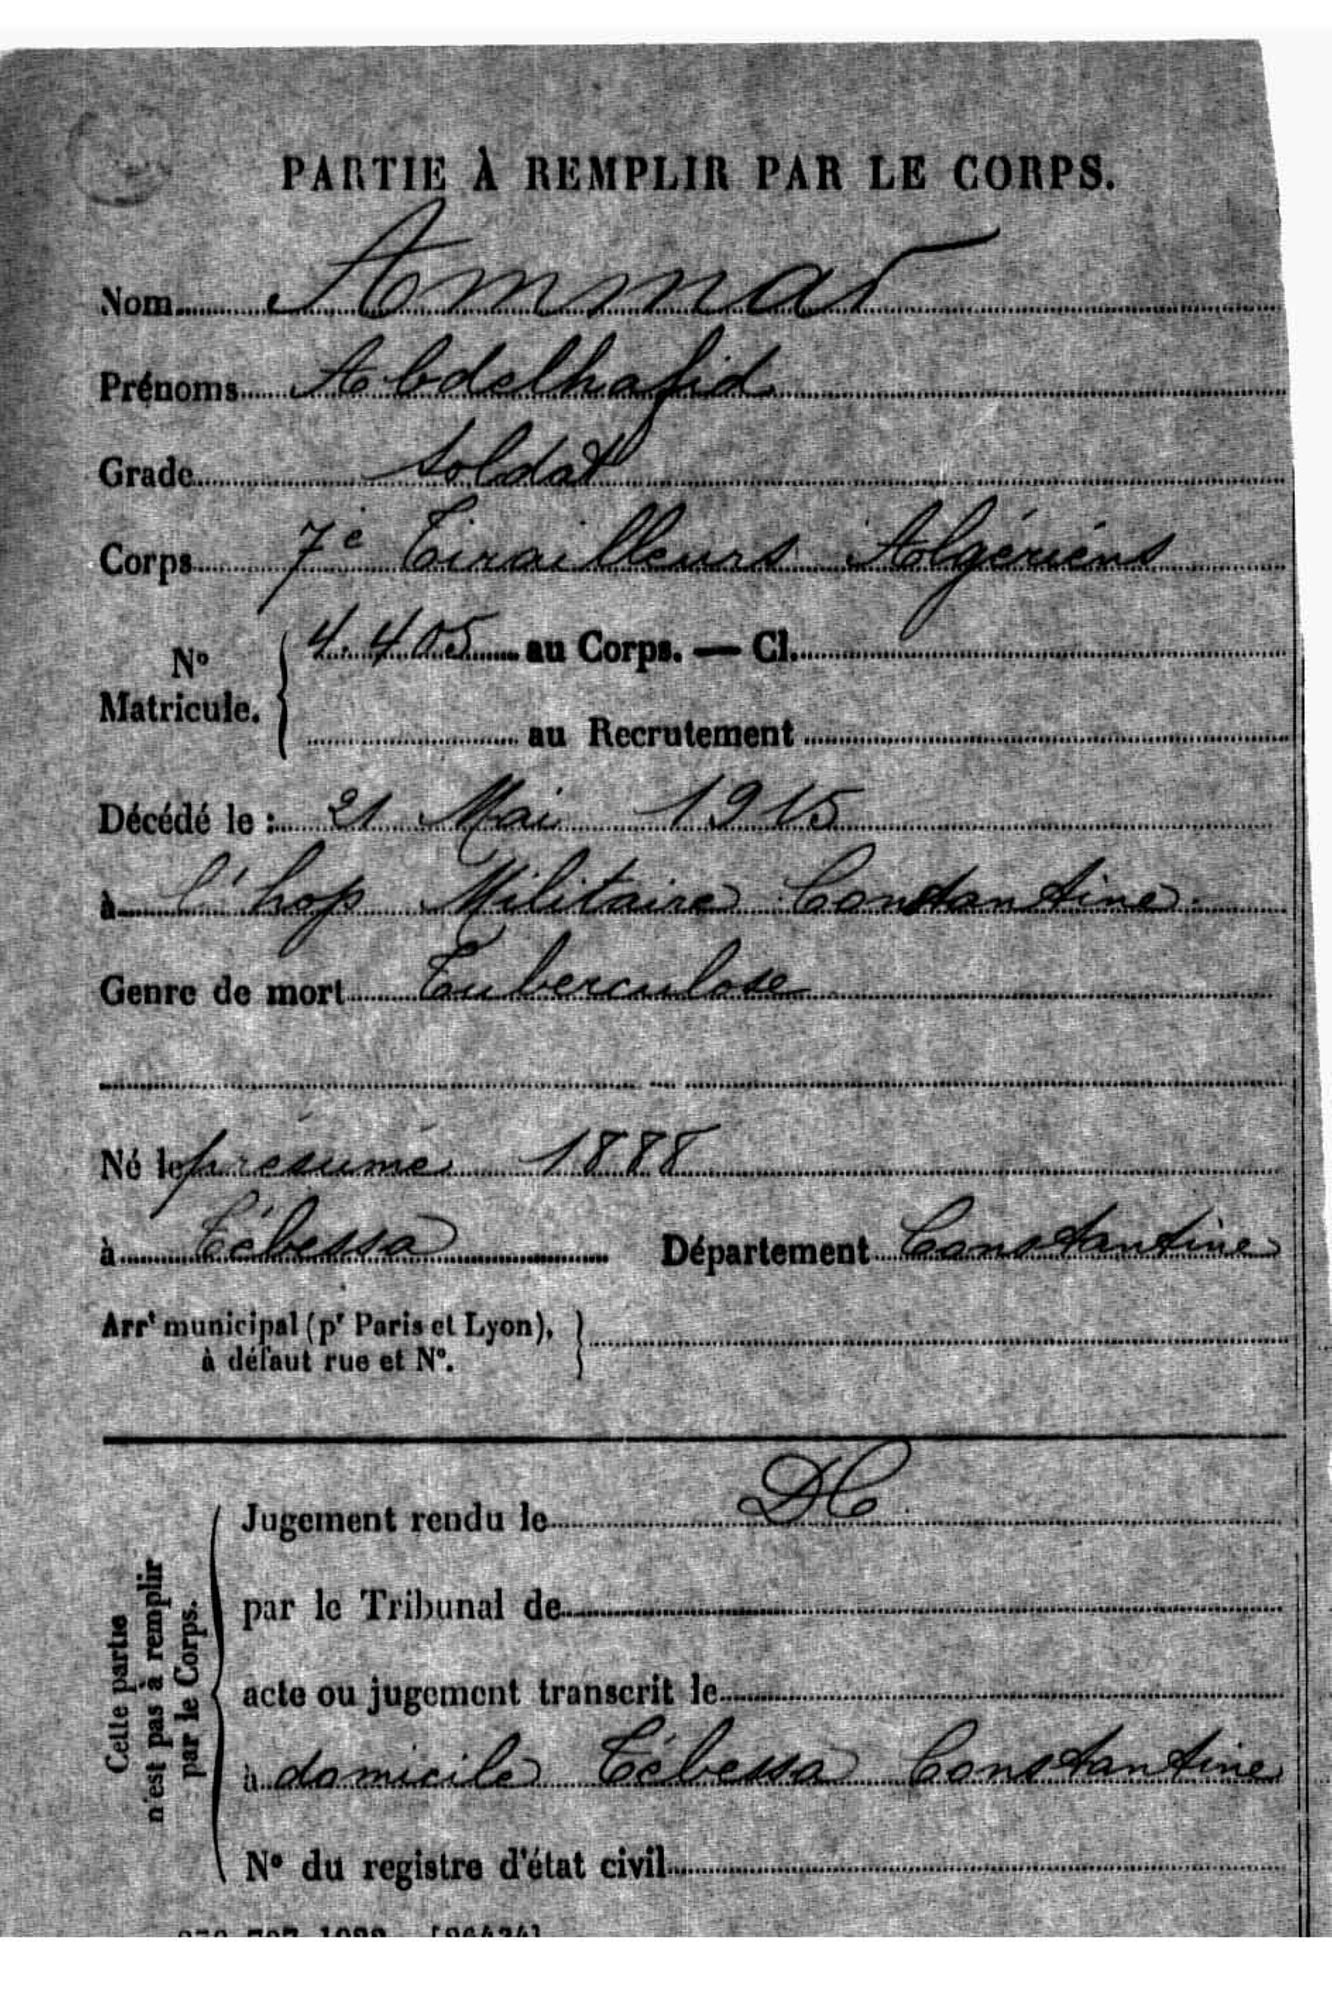 PARTIE À REMPLIR PAR LE CORPS.
Nom Ammar
Prénoms Abdelhafid
Grade Soldat
Corps 7e Tirailleurs Algériens
No Matricule. 4.405 au Corps. — Cl.
au Recrutement
Décédé le : 21 Mai 1915
à l'hop Militaire Constantine
Genre de mort Tuberculose
Né le présumé 1888
à Tébessa Département Constantine
Arrt municipal (pr Paris et Lyon),
à défaut rue et No.
Cette partie
n'est pas à remplir
par le Corps.
Jugement rendu le DC
par le Tribunal de
acte ou jugement transcrit le
à domicile Tébessa Constantine
No du registre d'état civil